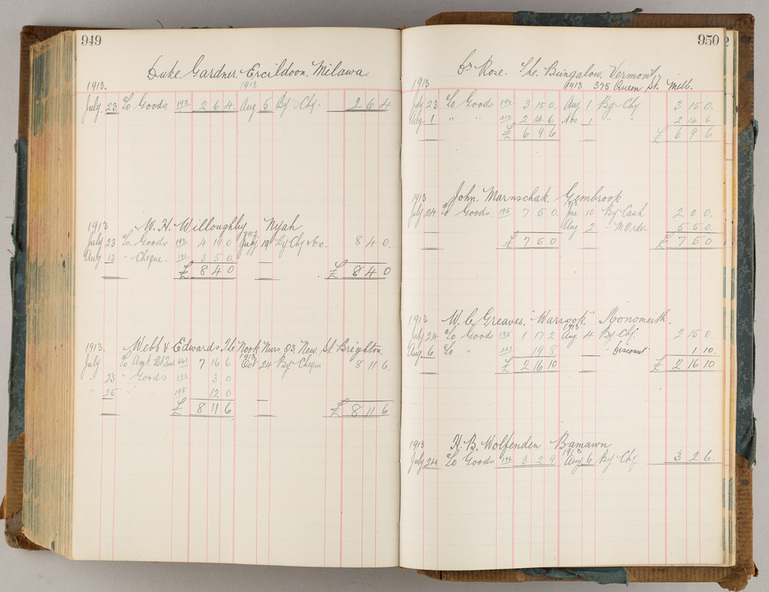 949
Duke Gardner. Ercildoon. Milawa.
1913. 1913
July 23 To Goods 2 6 4 Aug 5 By Chq. 2 6 4
1913 W. H. Willoughby Nyah
July 23 To Goods 4 19 0 By Chq &c. 8 4 0.
Aug 13 " Cheque 3 5 0
£ 8 4 0 £ 8 4 0
1913. Webb & Edwards. The Nook New St. Brighton
July To 7 16 6 Oct 24 By Cheque 8 11 6
23 " Goods 3 0
" 25 " " 12 0
£ 8 11 6 £ 8 11 6
950
1913 Rose. The Bungalow. Vermont.
1913 375 Queen St. Melb.
July 23 To Goods 3 15 0. Aug 1 By Chq 3 15 0.
Aug 1 " " 2 14 6 Nov 1 2 14 6
£ 6 9 6 £ 6 9 6
1913 John. Marnschak Gembrook
July 24 To Goods. 7 5 0. 10 By Cash 2 0 0.
Aug 2 " M Order 5 5 0.
£ 7 5 0 £ 7 5 0
1913 W. C. Greaves. "Warrook" Monomeith.
July 24 To Goods 1 17 2 Aug 4 By Chq. 2 15 0.
Aug 6 To " 19 8 " Discount 1 10
£ 2 16 10 £ 2 16 10
1913 H. B. Wolfenden Bamawn
July 24 To Goods 3 2 9 Aug 6 By Chq. 3 2 6.